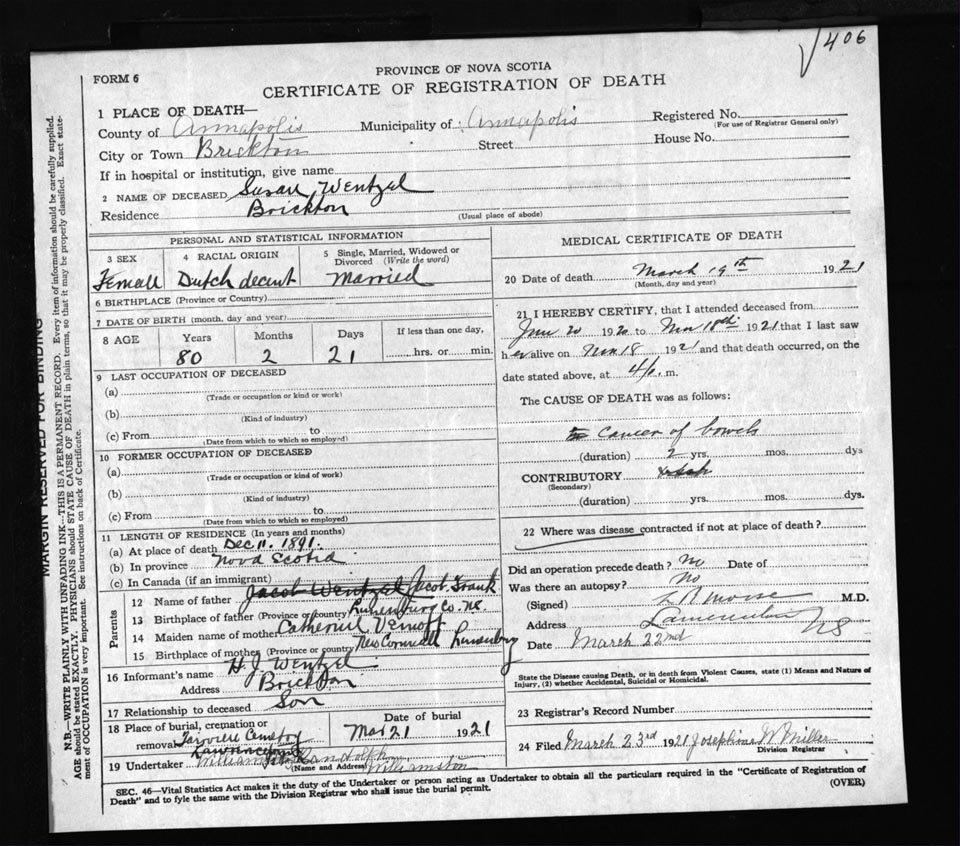 406
FORM 6
PROVINCE OF NOVA SCOTIA
CERTIFICATE OF REGISTRATION OF DEATH
1 PLACE OF DEATH—
County of Annapolis Municipality of Annapolis Registered No.
(For use of Registrar General only)
City or Town Brickton Street House No.
If in hospital or institution, give name
2 NAME OF DECEASED Susan Wentzel
Residence Brickton
(Usual place of abode)
MARGIN RESERVED FOR BINDING
N.B.—WRITE PLAINLY WITH UNFADING INK—THIS IS A PERMANENT RECORD. Every item of information should be carefully supplied.
AGE should be stated EXACTLY. PHYSICIANS should STATE CAUSE OF DEATH in plain terms, so that it may be properly classified. Exact state-
ment of OCCUPATION is very important. See instructions on back of Certificate.
PERSONAL AND STATISTICAL INFORMATION
3 SEX 4 RACIAL ORIGIN 5 Single, Married, Widowed or
Divorced (Write the word)
Female Dutch decent Married
6 BIRTHPLACE (Province or Country)
7 DATE OF BIRTH (month, day and year)
8 AGE Years Months Days If less than one day,
80 2 21 hrs. or min.
9 LAST OCCUPATION OF DECEASED
(a)
(Trade or occupation or kind or work)
(b)
(Kind of industry)
(c) From to
(Date from which to which so employed)
10 FORMER OCCUPATION OF DECEASED
(a)
(Trade or occupation or kind of work)
(b)
(Kind of industry)
(c) From to
(Date from which to which so employed)
11 LENGTH OF RESIDENCE (In years and months)
(a) At place of death Dec 11. 1891.
(b) In province Nova Scotia
(c) In Canada (if an immigrant)
Parents
12 Name of father Jacob Wentzel Jacob Frank
13 Birthplace of father (Province or country) Lunenburg Co. NS
14 Maiden name of mother Catherine
15 Birthplace of mother (Province or country) New Cornwall Lunenburg
16 Informant's name H. J. Wentzel
Address Brickton
17 Relationship to deceased Son
18 Place of burial, cremation or Date of burial
removal Cemetry Mar 21 1921
Lawrencetown
19 Undertaker
(Name and Address) Williamston
MEDICAL CERTIFICATE OF DEATH
20 Date of death March 19th 1921
(Month, day and year)
21 I HEREBY CERTIFY, that I attended deceased from
20 1920 to 18th 1921 that I last saw
her alive on 18 1921 and that death occurred, on the
date stated above, at 4 m.
The CAUSE OF DEATH was as follows:
Cancer of bowels
(duration) 2 yrs. mos. dys
CONTRIBUTORY
(Secondary)
(duration) yrs. mos. dys.
22 Where was disease contracted if not at place of death?
Did an operation precede death? No Date of
Was there an autopsy? No
(Signed) L R Morse M.D.
Address NS
Date March 22nd
State the Disease causing Death, or in death from Violent Causes, state (1) Means and Nature of
Injury, (2) whether Accidental, Suicidal or Homicidal.
23 Registrar's Record Number
24 Filed March 23rd 1921 Josephine W Miller
Division Registrar
SEC. 46—Vital Statistics Act makes it the duty of the Undertaker or person acting as Undertaker to obtain all the particulars required in the "Certificate of Registration of
Death" and to fyle the same with the Division Registrar who shall issue the burial permit.
(OVER)